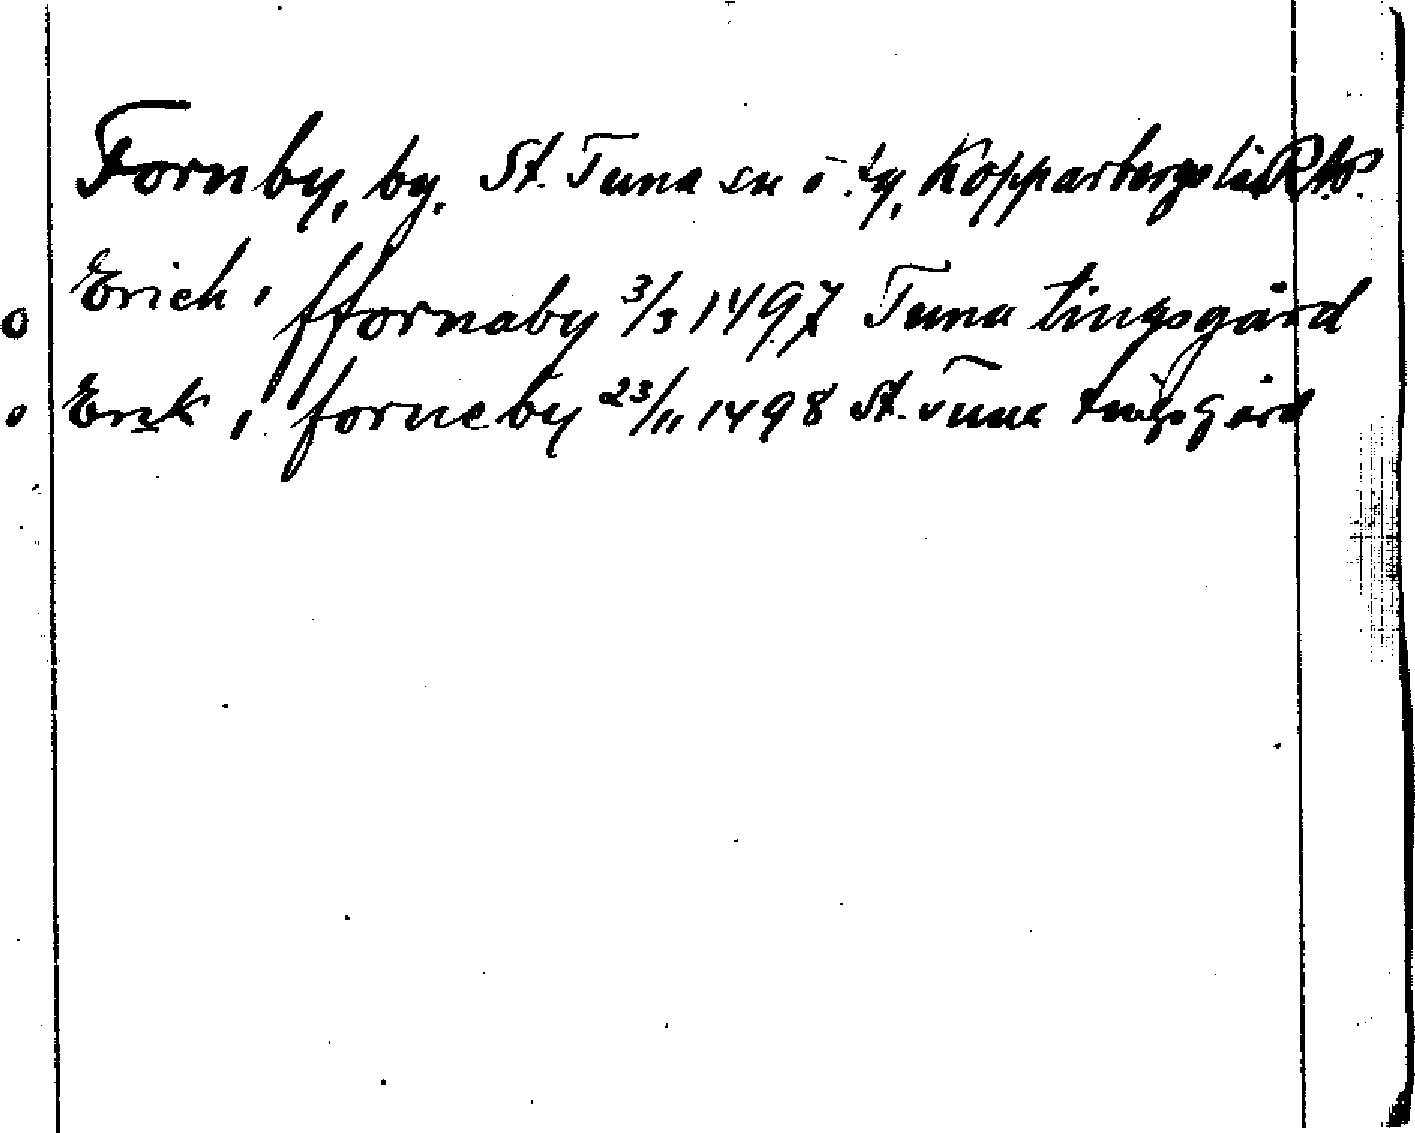 Fornby, by. St. Tuna sn o. tg, Kopparbergs län
o Erich i ffornaby 3/3 1497 Tuna tingsgård
o Erik i forneby 23/11 1498 St. Tuna tingsgård